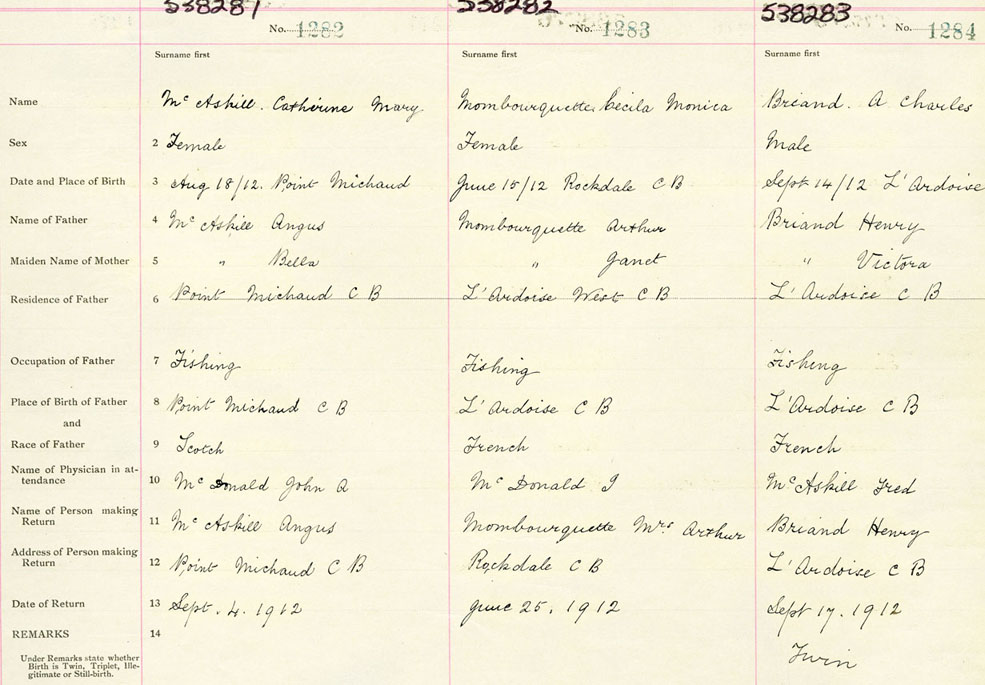 538281 538282 538283
No. 1282 No. 1283 No. 1284
Surname first Surname first Surname first
Name Mc Askill. Catherine Mary. Mombourquette, Cecila Monica Briand. A Charles
Sex 2 Female Female Male
Date and Place of Birth 3 Aug 18/12. Point Michaud June 15/12 Rockdale C B Sept 14/12 L'Ardoise
Name of Father 4 Mc Askill Angus Mombourquette Arthur Briand Henry
Maiden Name of Mother 5 " Bella " Janet " Victora
Residence of Father 6 Point Michaud C B L'Ardoise West C B L'Ardoise C B
Occupation of Father 7 Fishing Fishing Fisheng
Place of Birth of Father 8 Point Michaud C B L'Ardoise C B L'Ardoise C B
and
Race of Father 9 Scotch French French
Name of Physician in at-
tendance 10 Mc Donald John A Mc Donald J McAskill Fred
Name of Person making
Return 11 Mc Askill Angus Mombourquette Mrs. Arthur Briand Henry
Address of Person making
Return 12 Point Michaud C B Rockdale C B L'Ardoise C B
Date of Return 13 Sept. 4. 1912 June 25, 1912 Sept 17. 1912
REMARKS 14
Under Remarks state whether
Birth is Twin, Triplet, Ille-
gitimate or Still-birth.
Twin